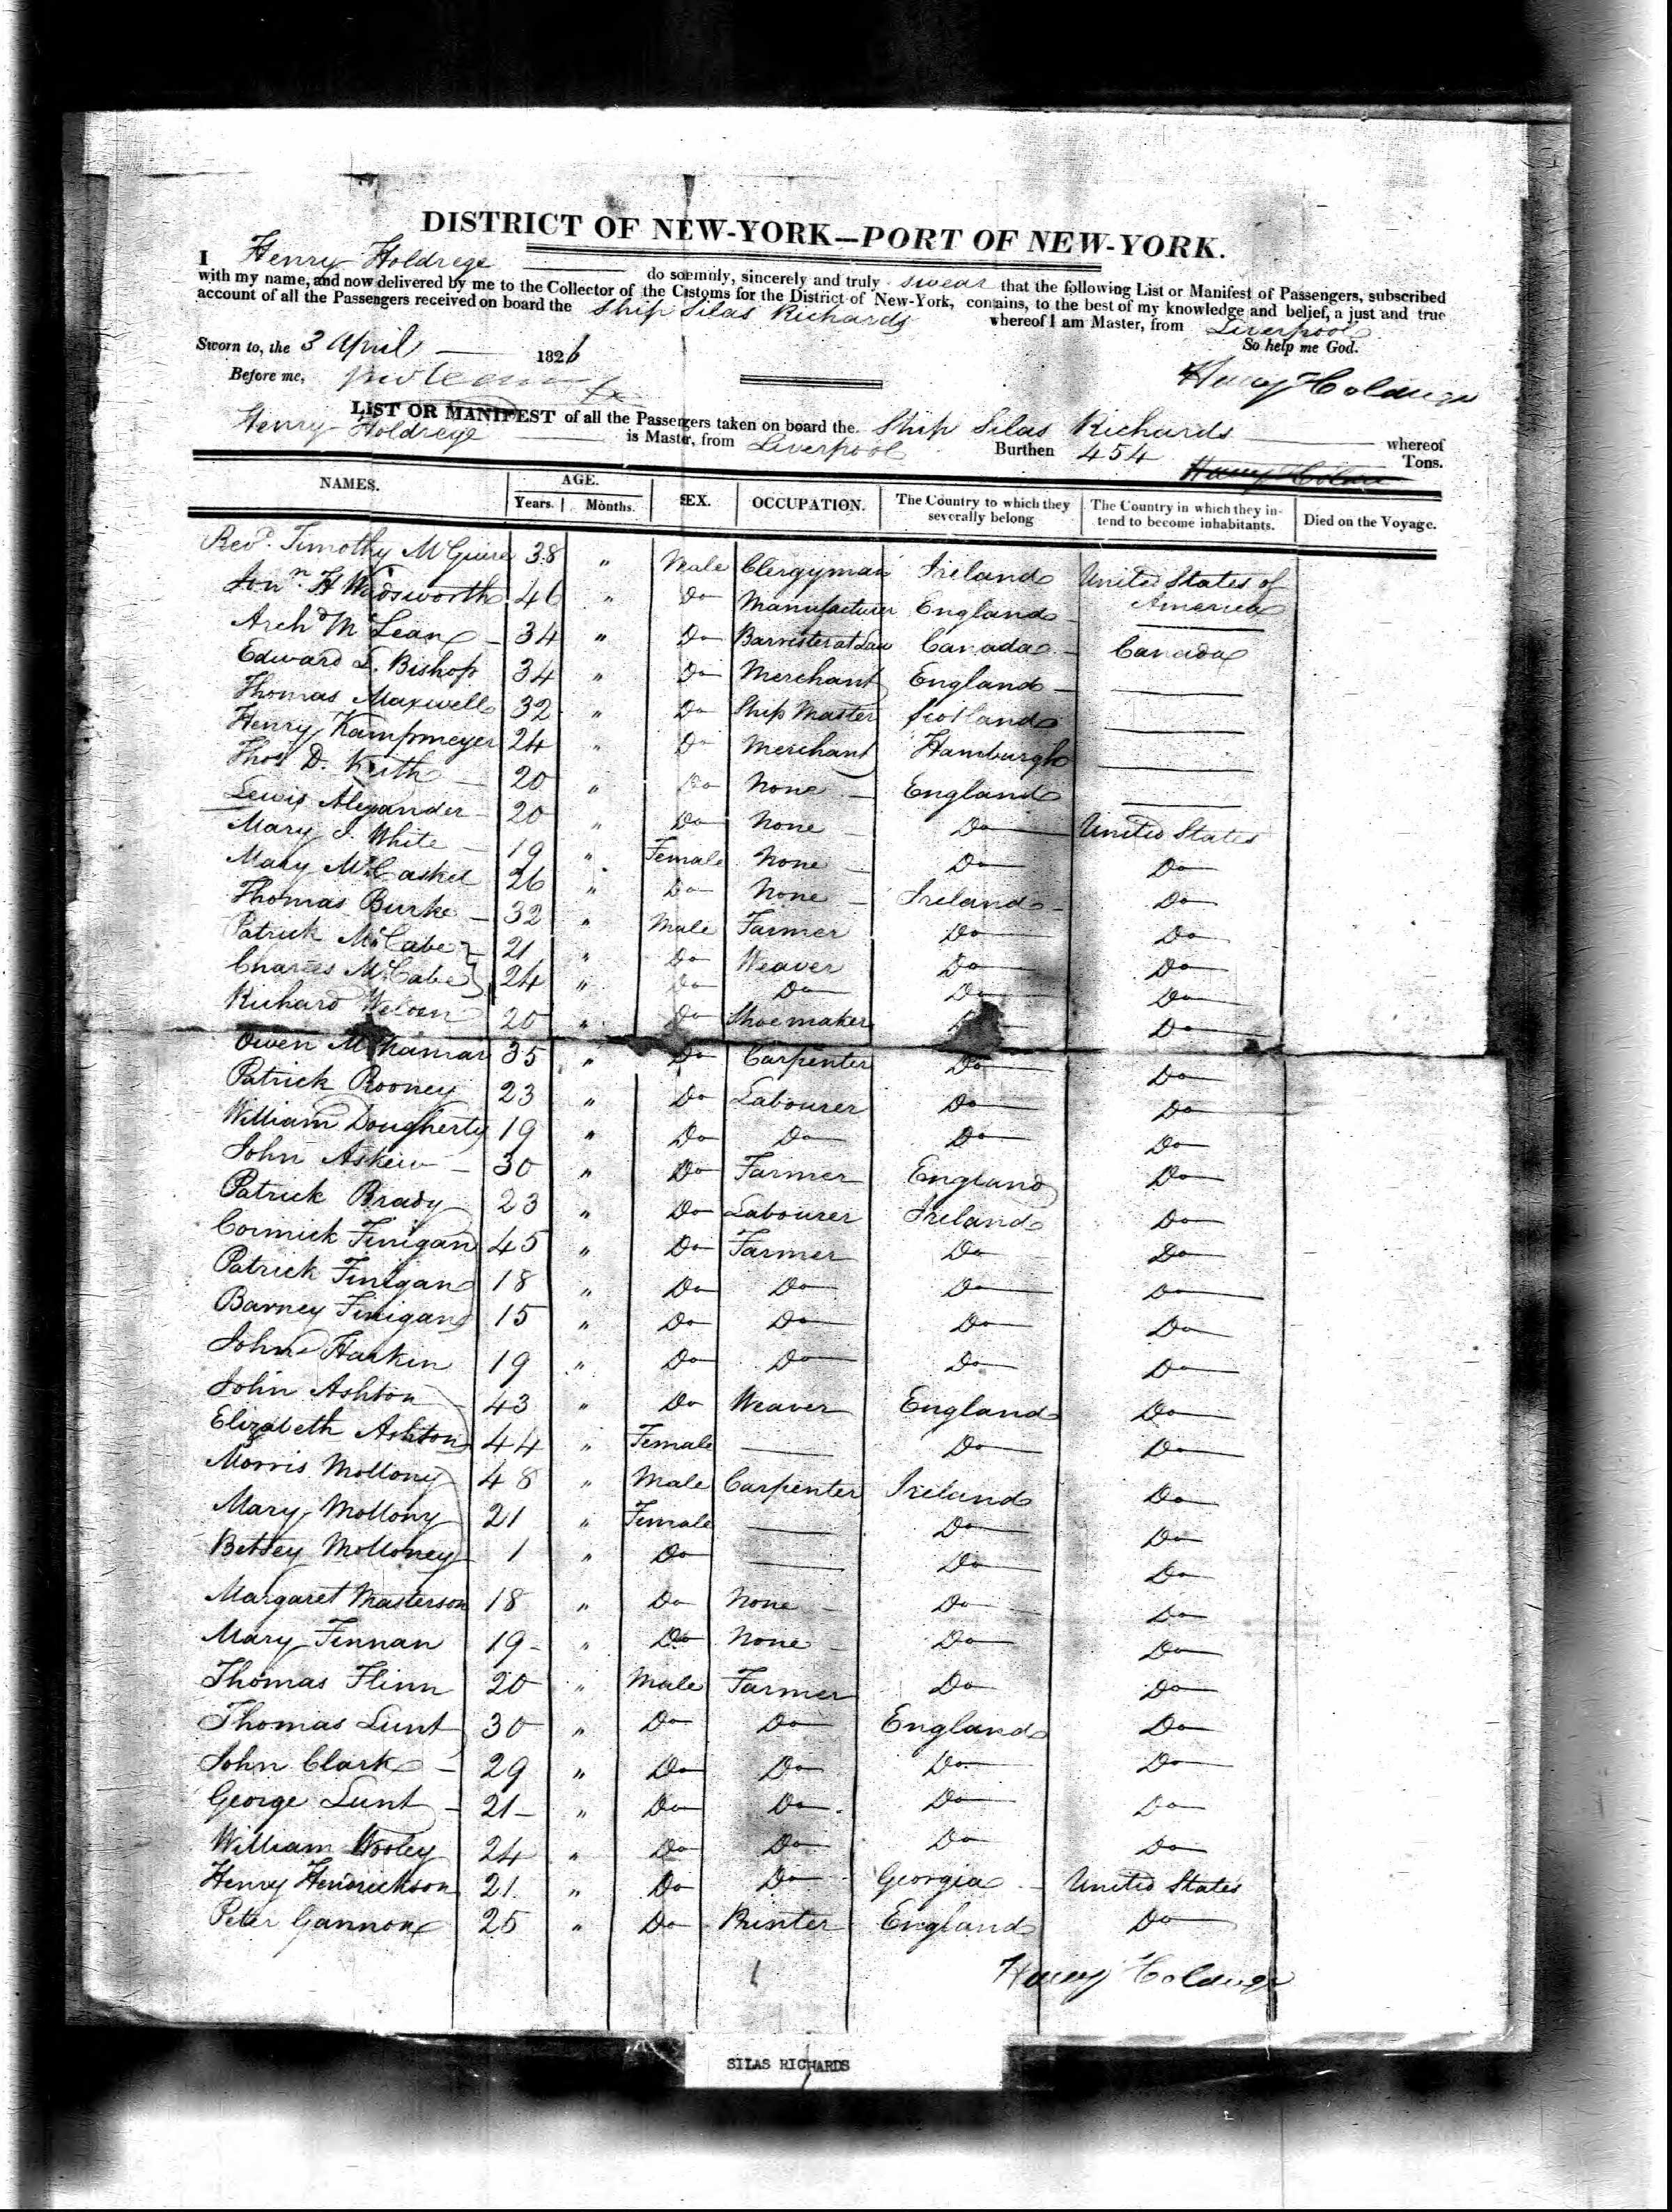 DISTRICT OF NEW-YORK—PORT OF NEW-YORK.
I Henry Holdrege do solemnly, sincerely and truly swear that the following List or Manifest of Passengers, subscribed
with my name, and now delivered by me to the Collector of the Customs for the District of New-York, contains, to the best of my knowledge and belief, a just and true
account of all the Passengers received on board the Ship Silas Richards whereof I am Master, from Liverpool
So help me God.
Sworn to, the 3 April 1826
Before me,
Henry Holdrege
LIST OR MANIFEST of all the Passengers taken on board the Ship Silas Richards whereof
Henry Holdrege is Master, from Liverpool Burthen 454 Tons.
NAMES. AGE. Years. Months. SEX. OCCUPATION. The Country to which they severally belong The Country in which they intend to become inhabitants. Died on the Voyage.
Revd. Timothy McGuire 38 " Male Clergyman Ireland United States of America
Jonn. H Wadsworth 46 " Do Manufacturer England —
Archd McLean 34 " Do Barrister at Law Canada Canada
Edward L. Bishop 34 " Do Merchant England —
Thomas Maxwell 32 " Do Ship Master Scotland —
Henry Kampmeyer 24 " Do Merchant Hamburgh —
Thos D. Keith 20 " Do None England —
Lewis Alexander 20 " Do None Do United States
Mary J. White 19 " Female None Do Do
Mary McCaskel 26 " Do None Ireland Do
Thomas Burke 32 " Male Farmer Do Do
Patrick McCabe 21 " Do Weaver Do Do
Charles McCabe 24 " Do Do Do Do
Richard 20 " Do Shoemaker Do
Owen 35 " Do Carpenter Do Do
Patrick Rooney 23 " Do Labourer Do Do
William Dougherty 19 " Do Do Do Do
John Askew 30 " Do Farmer England Do
Patrick Brady 23 " Do Labourer Ireland Do
Cormick Finigan 45 " Do Farmer Do Do
Patrick Finigan 18 " Do Do Do Do
Barney Finigan 15 " Do Do Do Do
John Harkin 19 " Do Do Do Do
John Ashton 43 " Do Weaver England Do
Elizabeth Ashton 44 " Female — Do Do
Morris Mollony 48 " Male Carpenter Ireland Do
Mary Mollony 21 " Female — Do Do
Betsey Molloney 1 " Do — Do Do
Margaret Masterson 18 " Do None Do Do
Mary Finnan 19 " Do None Do Do
Thomas Flinn 20 " Male Farmer Do Do
Thomas Lunt 30 " Do Do England Do
John Clark 29 " Do Do Do Do
George Lunt 21 " Do Do Do Do
William Wooley 24 " Do Do Do Do
Henry Hendrickson 21 " Do Do Georgia United States
Peter Gannon 25 " Do Printer England Do
Henry Holdrege
SILAS RICHARDS